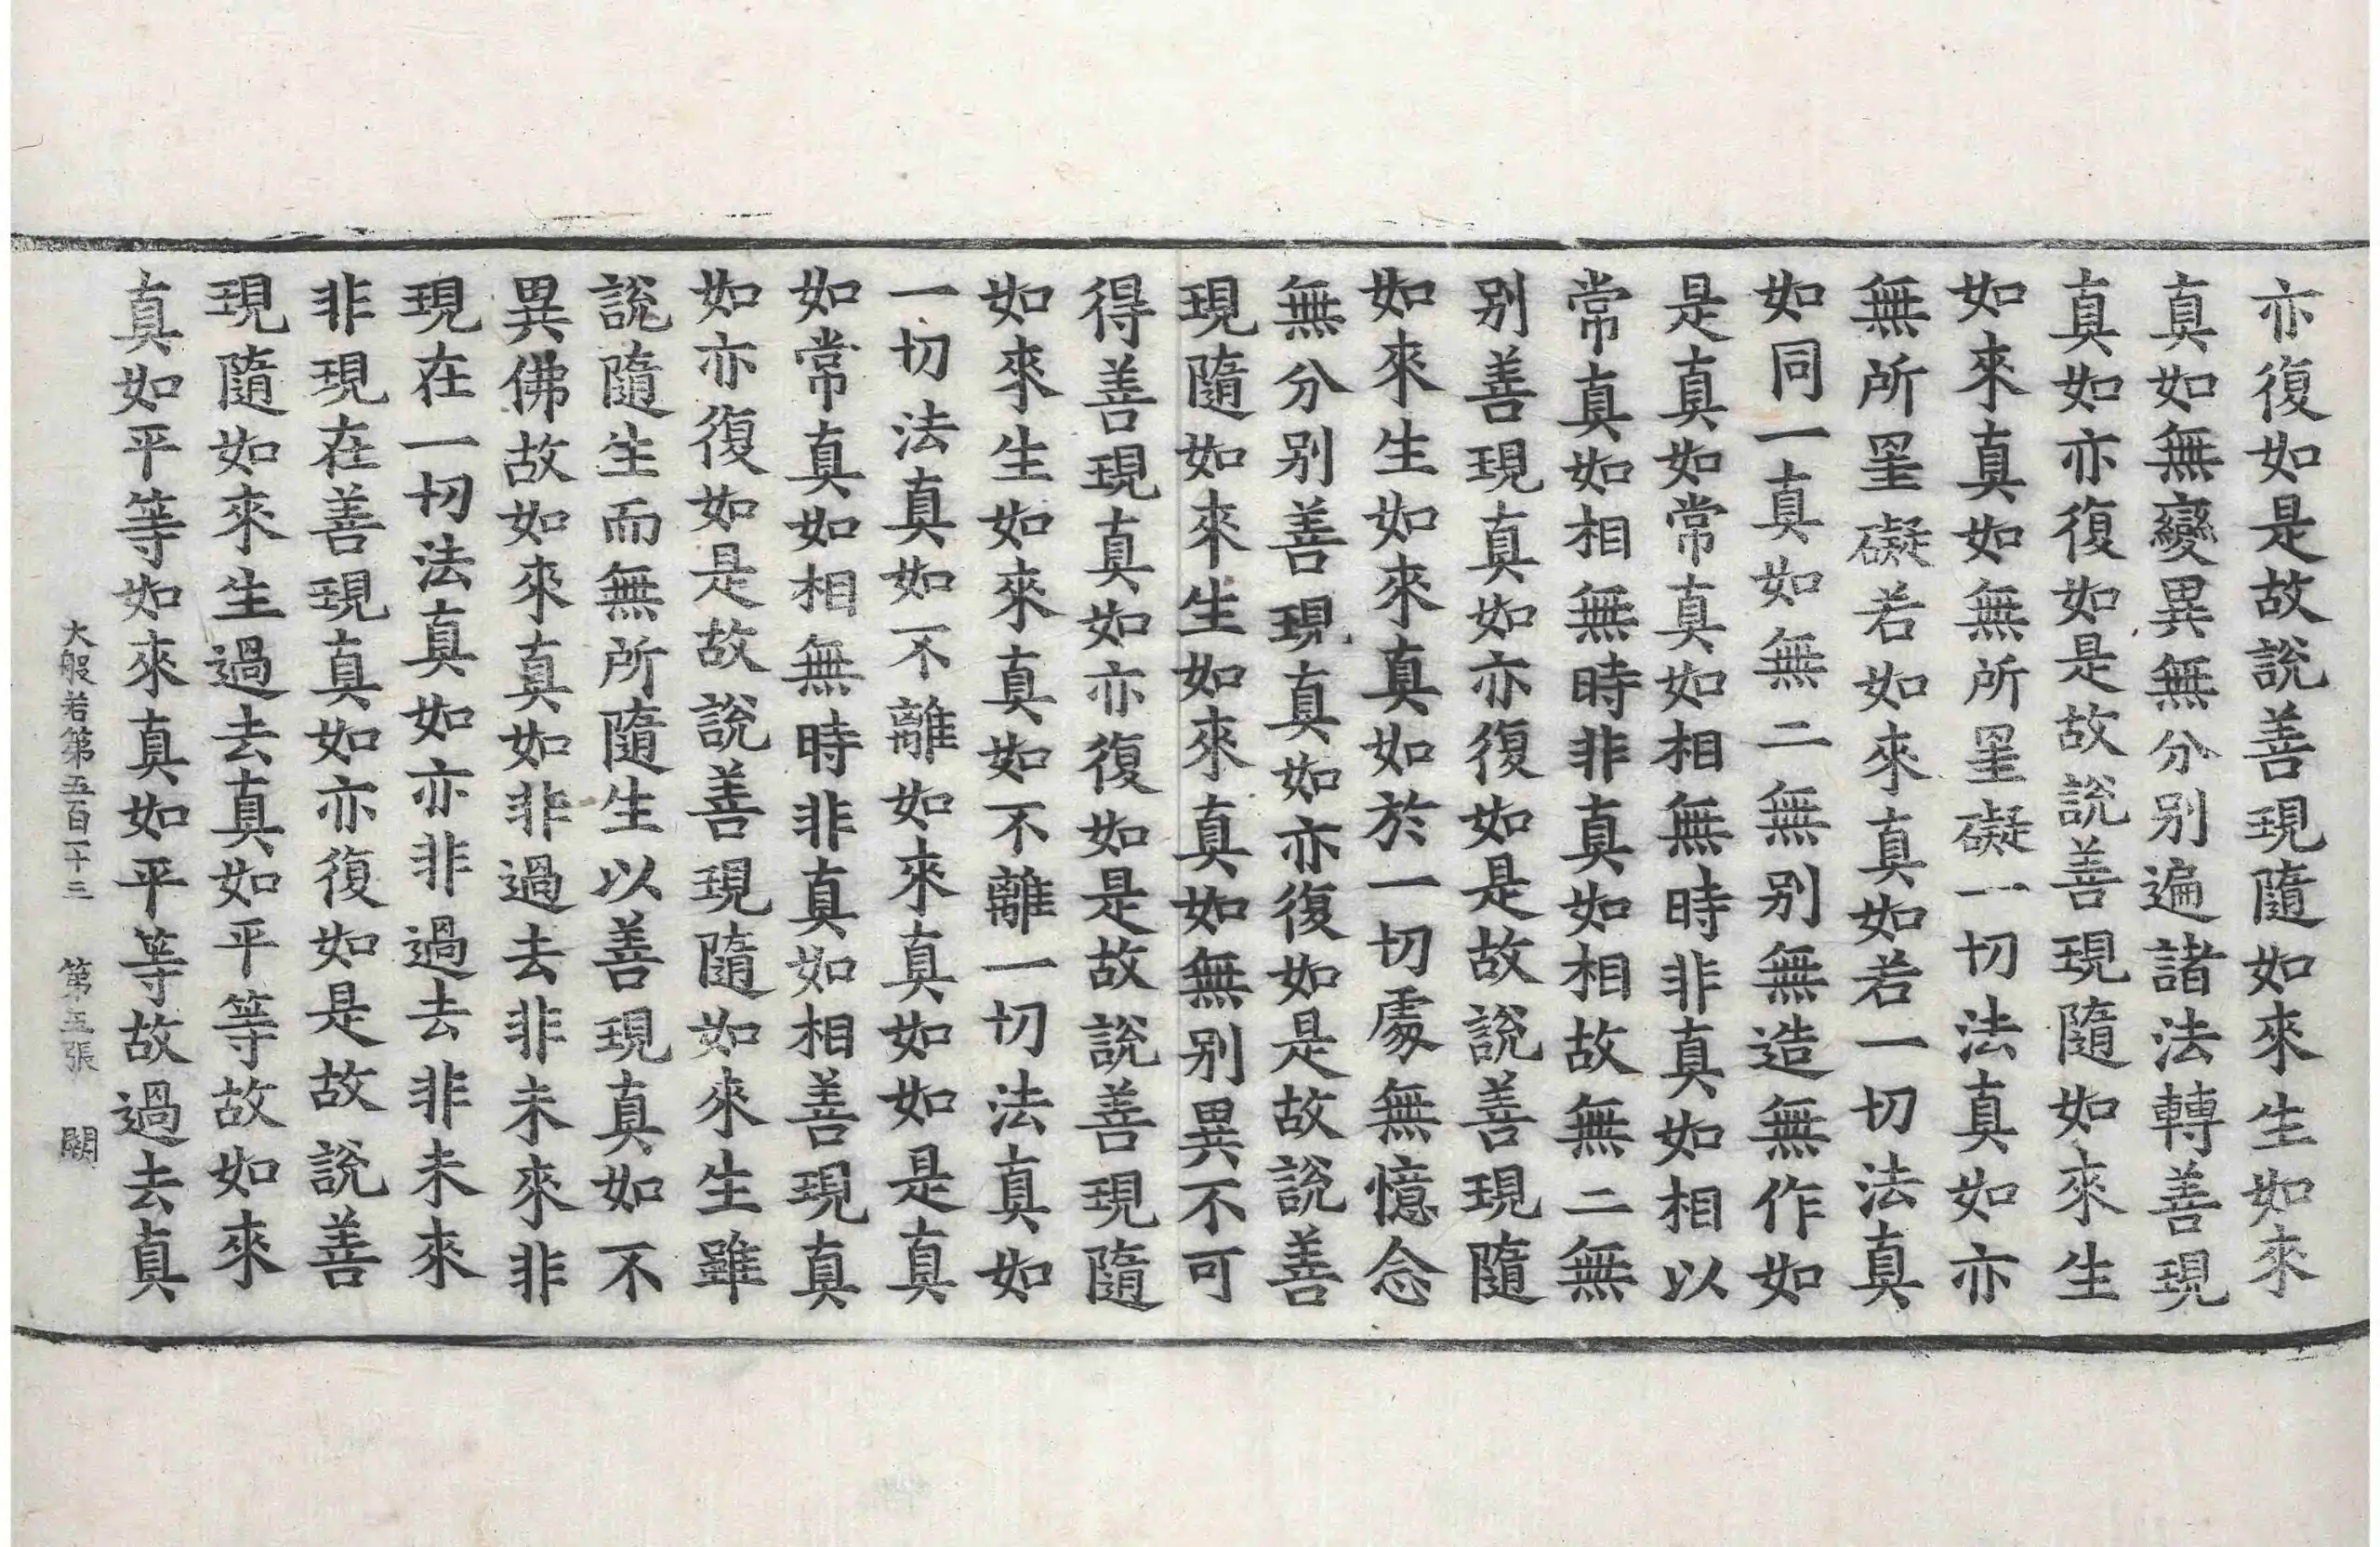 亦復如是故說善現隨如來生如來
真如無變異無分别遍諸法轉善現
真如亦復如是故說善現隨如來生
如來真如無所罣礙一切法真如亦
無所罣礙若如來真如若一切法真
如同一真如無二無别無造無作如
是真如常真如相無時非真如相以
常真如相無時非真如相故無二無
别善現真如亦復如是故說善現隨
如來生如來真如於一切處無憶念
無分别善現真如亦復如是故說善
現隨如來生如來真如無别異不可
得善現真如亦復如是故說善現隨
如來生如來真如不離一切法真如
一切法真如不離如來真如如是真
如常真如相無時非真如相善現真
如亦復如是故說善現隨如來生雖
說隨生而無所隨生以善現真如不
異佛故如來真如非過去非未來非
現在一切法真如亦非過去非未來
非現在善現真如亦復如是故說善
現隨如來生過去真如平等故如來
真如平等如來真如平等故過去真
大般若第五百一十三 第五張 闕